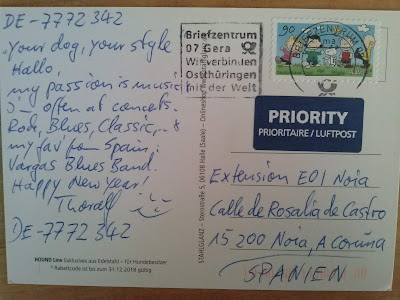 DE-7772 342
- your dog, your style
Hallo,
my passion is music
often at concerts.
Rock, Blues, Classic, ..
my fav from Spain:
Vargas Blues Band.
Happy New Year!
Thoralf
DE-7772 342
HOUND Line Exklusives aus Edelstahl – für Hundebesitzer
* Rabattcode ist bis zum 31.12.2018 gültig
STAHLGLANZ – Sternstraße 5, 06108 Halle (Saale) – Onlineshop
Briefzentrum
07 Gera
Wir verbinden
Ostthüringen
mit der Welt
90
BRIEFZENTRUM
PRIORITY
PRIORITAIRE / LUFTPOST
Extension E01 Noia
Calle de Rosalia de Castro
15200 Noia, A Coruña
SPANIEN